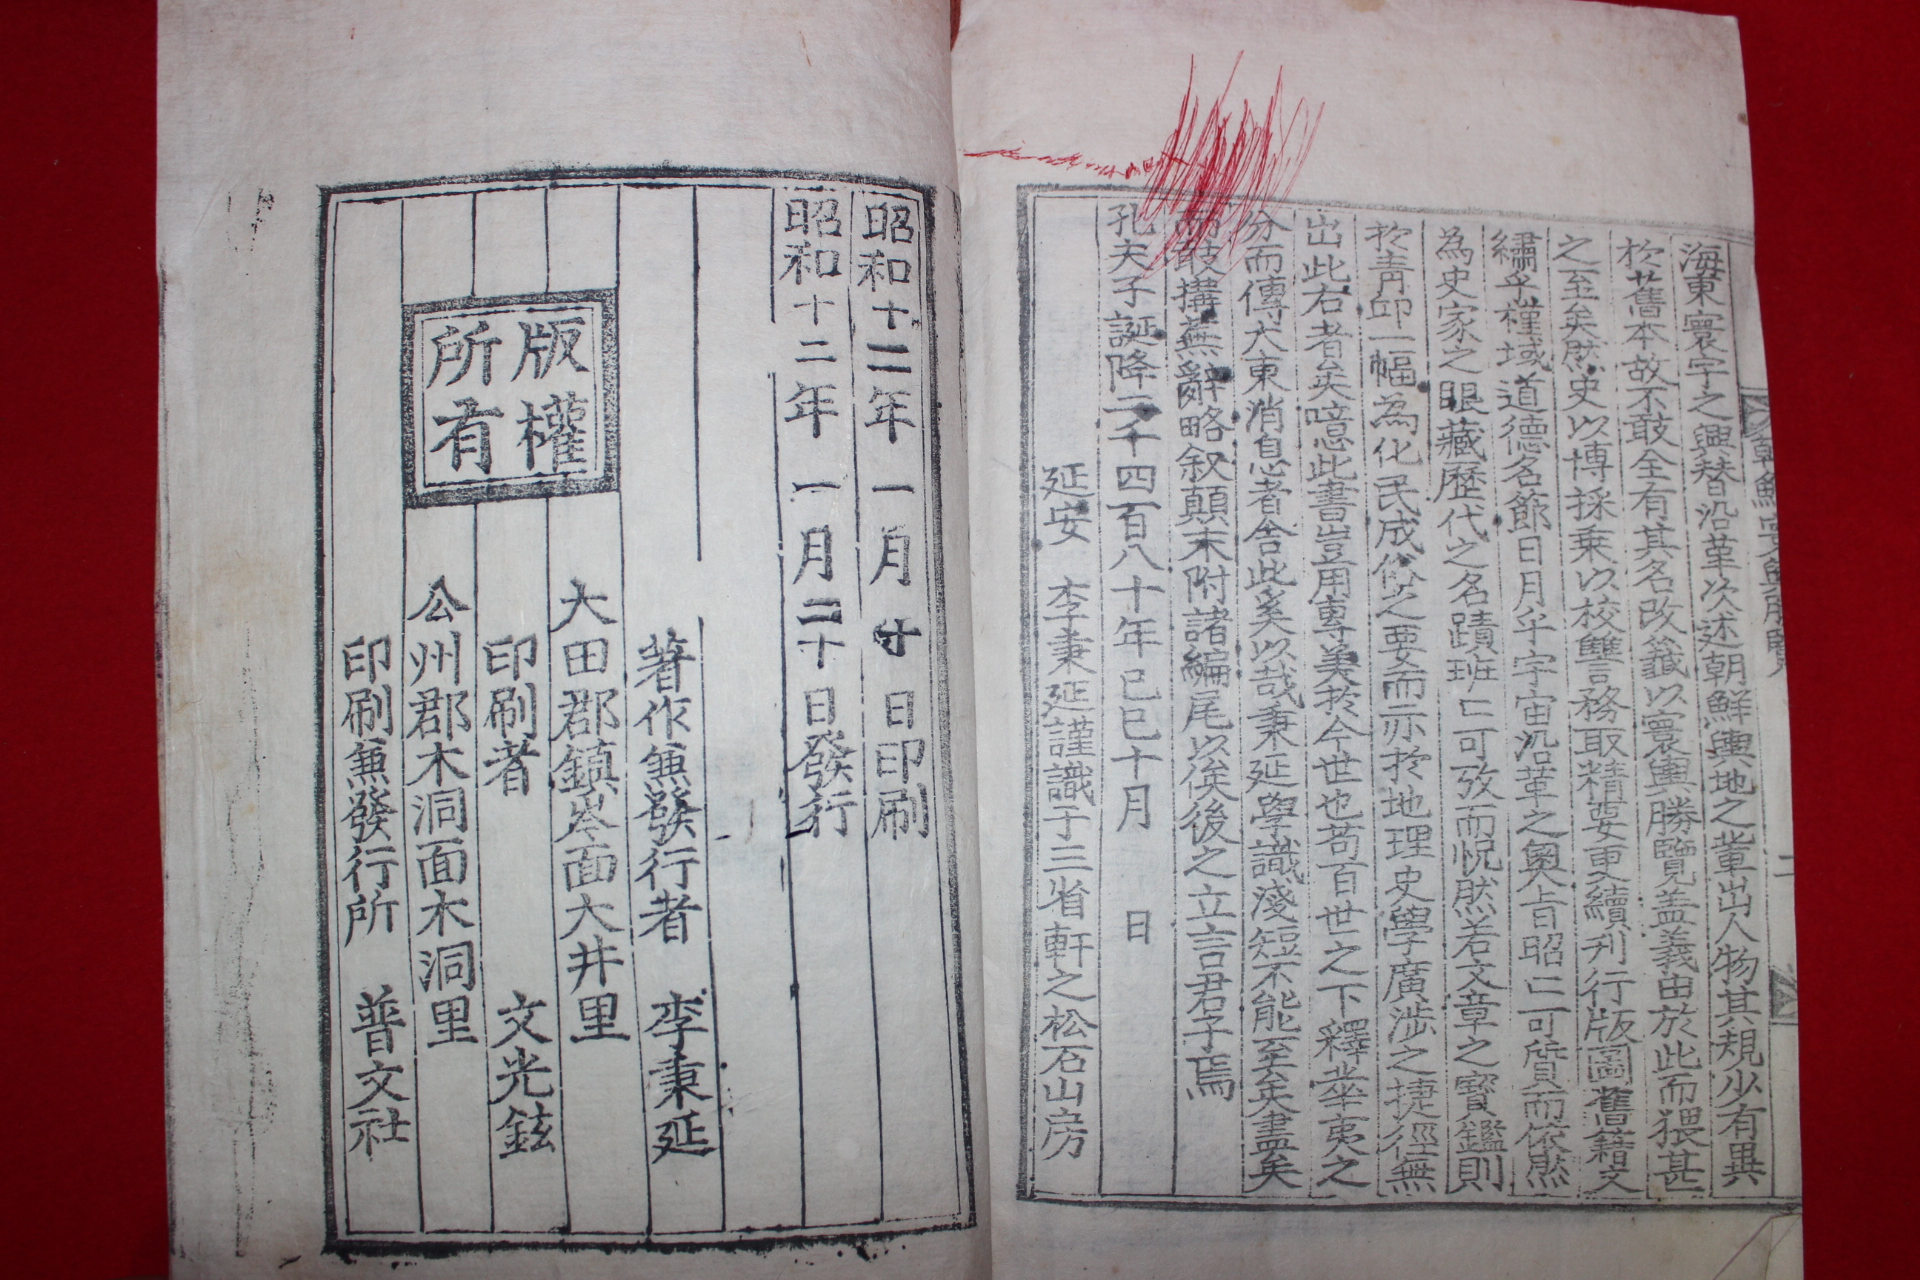 海東寰宇之興替沿革次述朝鮮輿地之輩出人物其規少有異
於舊本故不敢全有其名改籤以寰輿勝覽盖義由於此而猥甚
之至矣然史以博採乗以校讐務取精要更續刊行版圖舊籍文
繡乎槿域道德名節日月乎宇宙沿革之奧旨昭〻可質而依然
為史家之眼藏歷代之名蹟班〻可攷而怳然若文章之寶鑑則
於青邱一幅為化民成俗之要而亦於地理史學廣涉之捷徑無
出此右者矣噫此書豈用專美於今世也苟百世之下釋耒夷之
分而傳大東消息者舍此奚以哉秉延學識淺短不能至矣盡矣
敢搆蕪辭略叙顛末附諸編尾以俟後之立言君子焉
孔夫子誕降二千四百八十年己巳十月 日
延安 李秉延謹識于三省軒之松石山房
昭和十二年一月廿日印刷
昭和十二年一月二十日發行
著作兼發行者 李秉延
大田郡鎮岑面大井里
印刷者 文光鉉
公州郡木洞面木洞里
印刷兼發行所 普文社
版權
所有